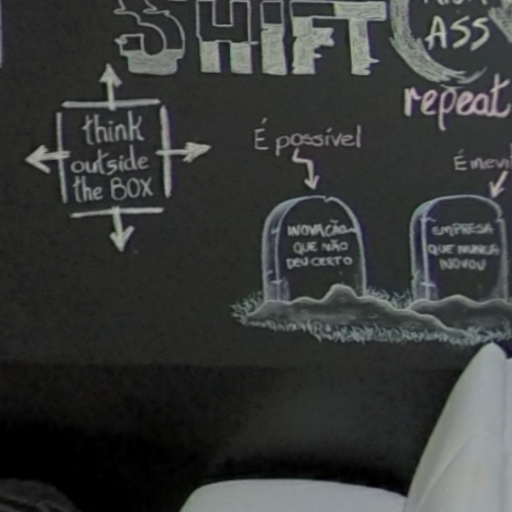 SHIFT
ASS
repeat
think
outside
the BOX
É possível
INOVAÇÃO
QUE NÃO
DEU CERTO
EMPRESA
QUE NUNCA
INOVOU